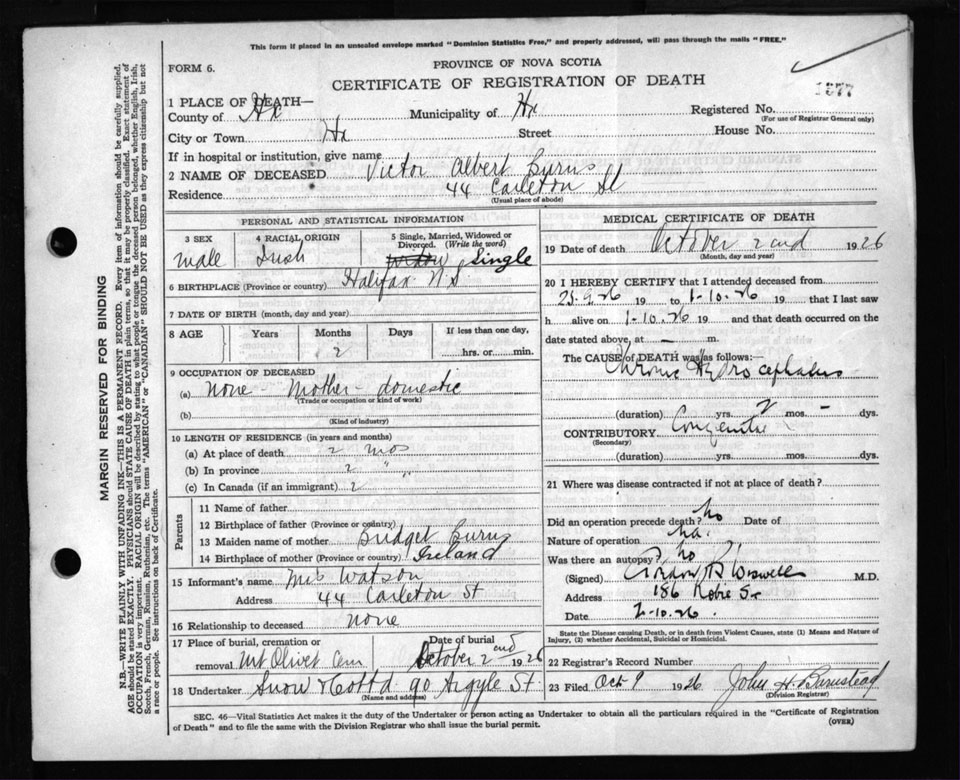 This form if placed in an unsealed envelope marked "Dominion Statistics Free," and properly addressed, will pass through the mails "FREE."
FORM 6.
PROVINCE OF NOVA SCOTIA
CERTIFICATE OF REGISTRATION OF DEATH
1877
1 PLACE OF DEATH—
County of Hx Municipality of Hx Registered No.
(For use of Registrar General only)
City or Town Hx Street House No.
If in hospital or institution, give name
2 NAME OF DECEASED Victor Albert Burns
Residence 44 Carleton St
(Usual place of abode)
PERSONAL AND STATISTICAL INFORMATION
3 SEX male
4 RACIAL ORIGIN Irish
5 Single, Married, Widowed or Divorced. (Write the word) widow Single
6 BIRTHPLACE (Province or country) Halifax N.S.
7 DATE OF BIRTH (month, day and year)
8 AGE Years Months Days If less than one day,
2 hrs. or min.
9 OCCUPATION OF DECEASED
(a) none - Mother - domestic
(Trade or occupation or kind of work)
(b)
(Kind of industry)
10 LENGTH OF RESIDENCE (in years and months)
(a) At place of death 2 mos
(b) In province 2 "
(c) In Canada (if an immigrant) 2
Parents
11 Name of father
12 Birthplace of father (Province or country)
13 Maiden name of mother Bridget Burns
14 Birthplace of mother (Province or country) Ireland
15 Informant's name Mrs Watson
Address 44 Carleton St
16 Relationship to deceased none
17 Place of burial, cremation or removal Mt Olivet Cem Date of burial October 2nd 1926
18 Undertaker Snow & Co Ltd 90 Argyle St
(Name and address)
MEDICAL CERTIFICATE OF DEATH
19 Date of death October 2nd 1926
(Month, day and year)
20 I HEREBY CERTIFY that I attended deceased from
23.9.26 19 to 1-10-26 19 that I last saw
h alive on 1-10.26 19 and that death occurred on the
date stated above, at — m.
The CAUSE of DEATH was as follows:
Chronic Hydrocephalus
(duration) yrs. 2 mos. - dys.
CONTRIBUTORY Congenital
(Secondary)
(duration) yrs. mos. dys.
21 Where was disease contracted if not at place of death?
Did an operation precede death? no Date of
Nature of operation
Was there an autopsy? no
(Signed) Wiswell M.D.
Address 186 Robie St
Date 2-10-26.
State the Disease causing Death, or in death from Violent Causes, state (1) Means and Nature of Injury, (2) whether Accidental, Suicidal or Homicidal.
22 Registrar's Record Number
23 Filed Oct 9 1926 John H. Bumstead
(Division Registrar)
SEC. 46—Vital Statistics Act makes it the duty of the Undertaker or person acting as Undertaker to obtain all the particulars required in the "Certificate of Registration
of Death" and to file the same with the Division Registrar who shall issue the burial permit.
(OVER)
MARGIN RESERVED FOR BINDING
N.B.—WRITE PLAINLY WITH UNFADING INK—THIS IS A PERMANENT RECORD. Every item of information should be carefully supplied.
AGE should be stated EXACTLY. PHYSICIANS should STATE CAUSE OF DEATH in plain terms, so that it may be properly classified. Exact statement of
OCCUPATION is very important. RACIAL ORIGIN will be described by stating to what people or tongue the deceased person belonged, whether English, Irish,
Scotch, French, German, Russian, Ruthenian, etc. The terms "AMERICAN" or "CANADIAN" SHOULD NOT BE USED as they express citizenship but not
a race or people. See instructions on back of Certificate.